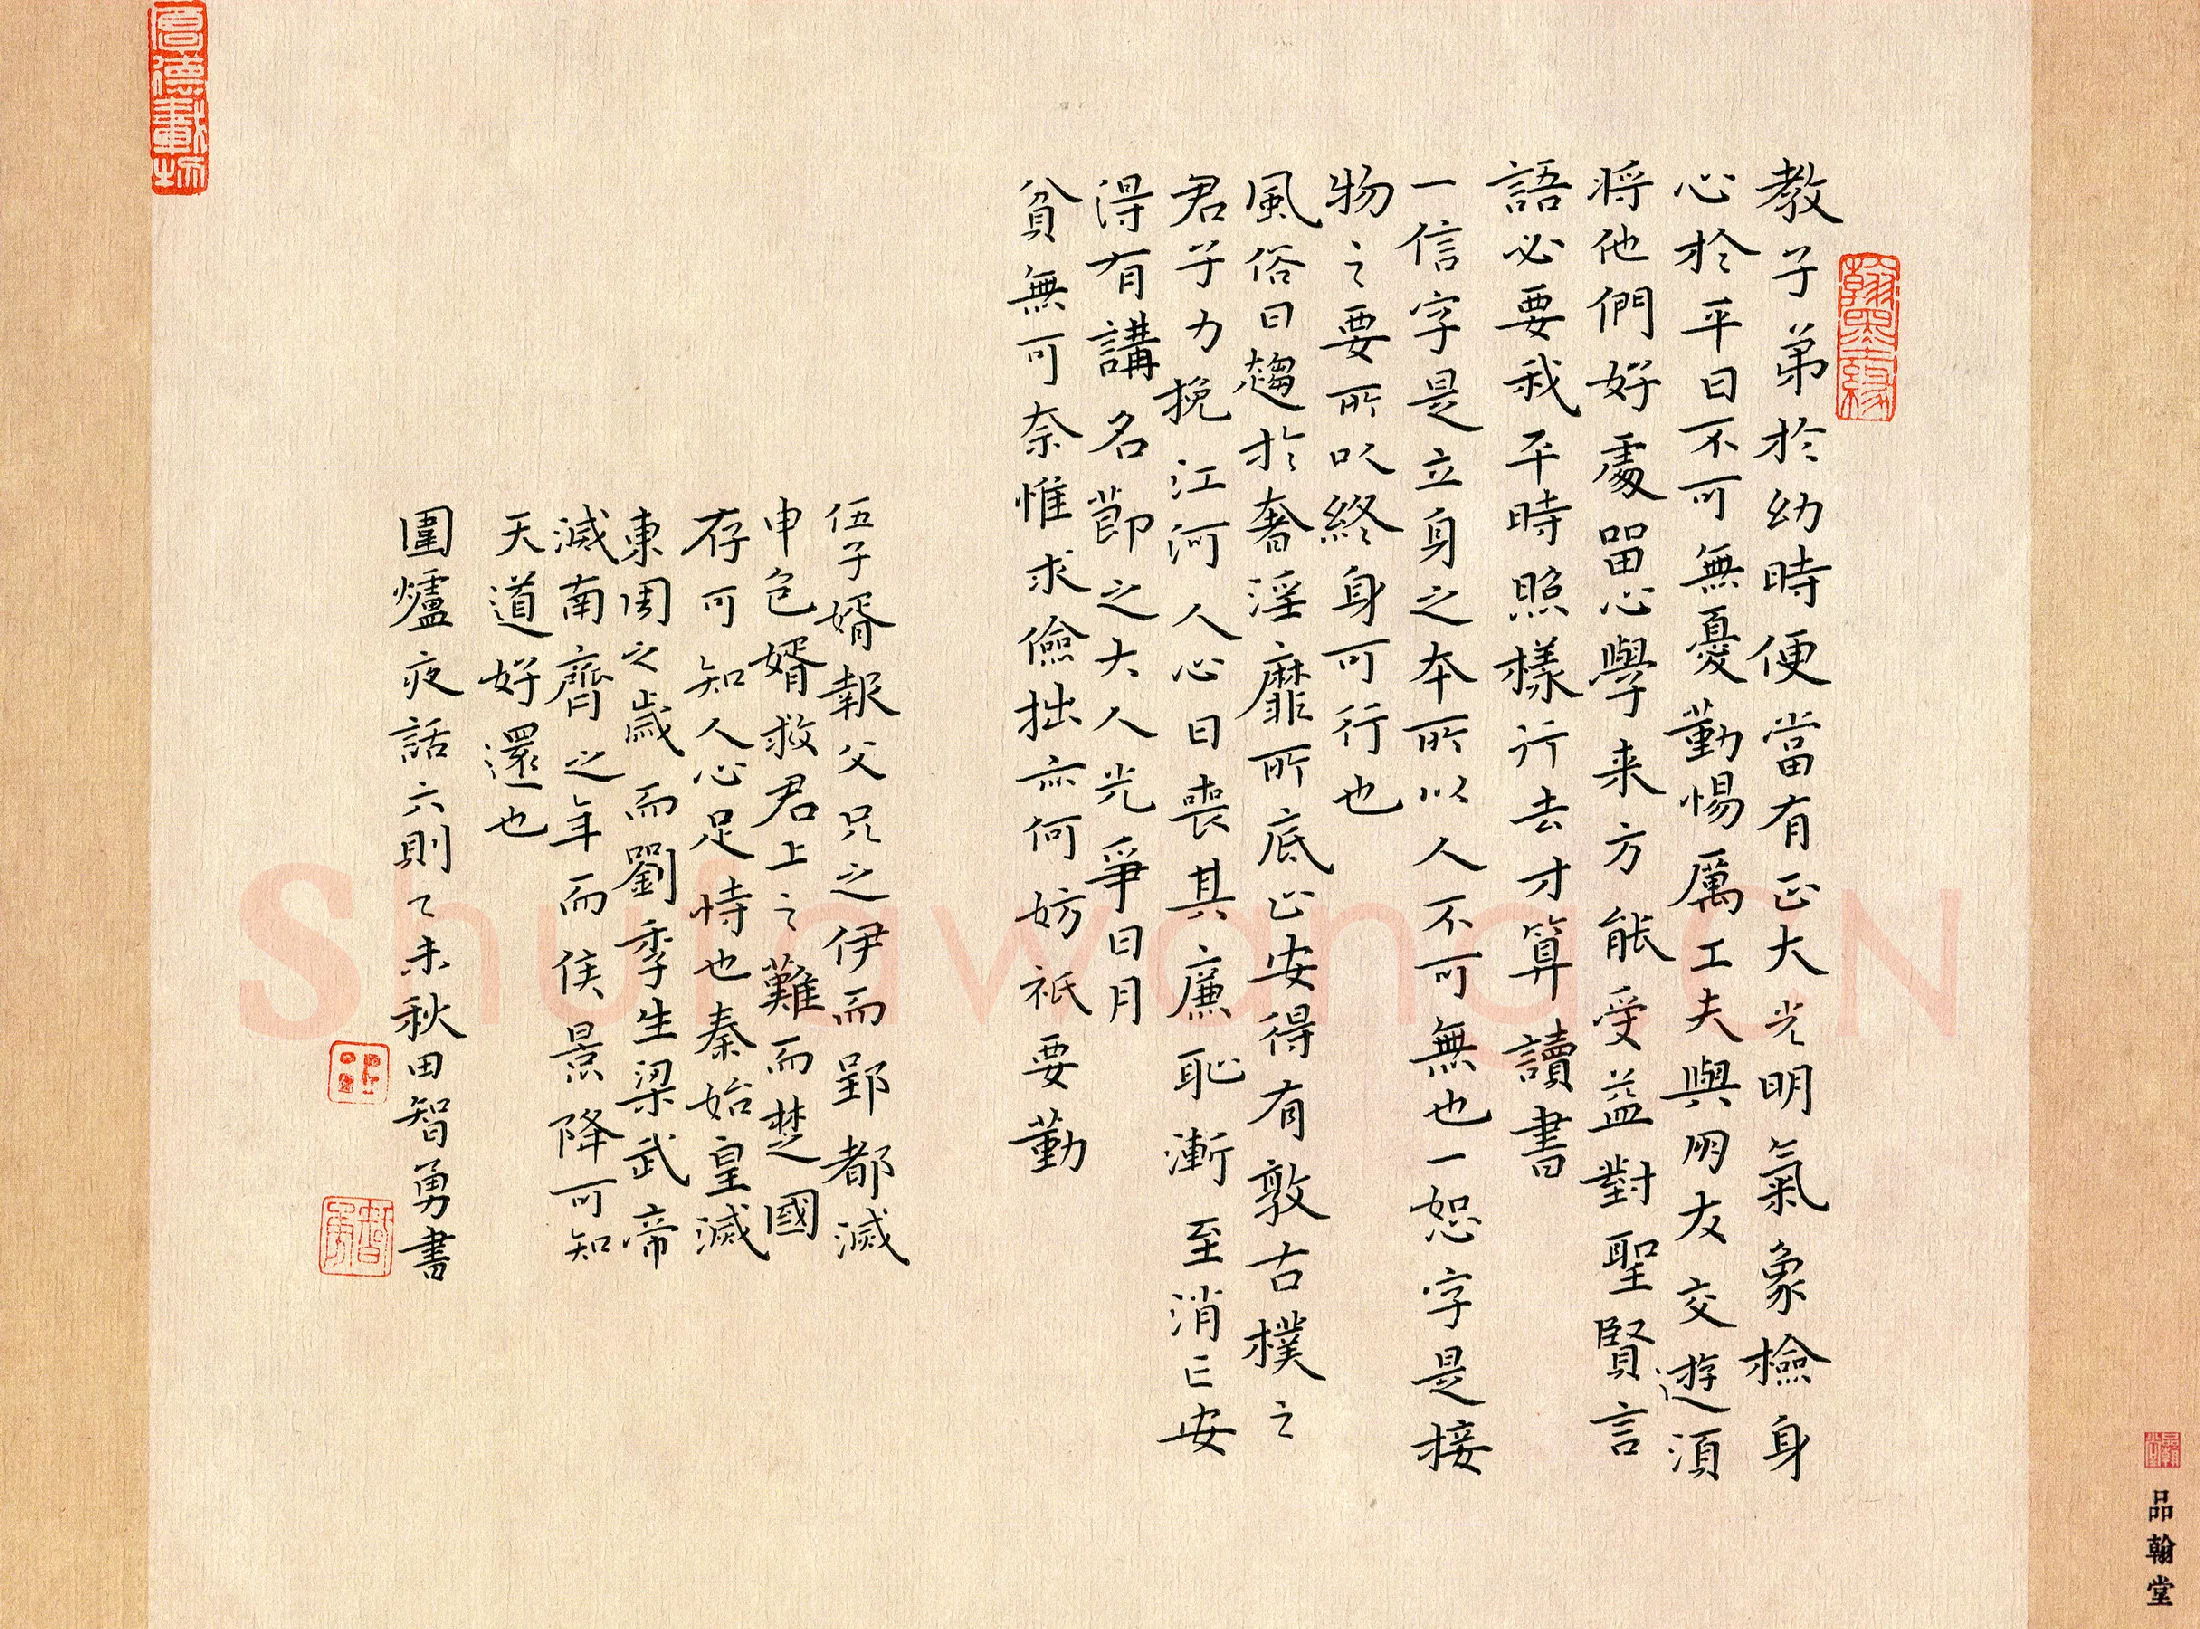 翰墨緣
教子弟於幼時便當有正大光明氣象檢身
心於平日不可無憂勤惕厲工夫與朋友交遊須
將他們好處留心學来方能受益對聖賢言
語必要我平時照樣行去才算讀書
一信字是立身之本所以人不可無也一恕字是接
物之要所以終身可行也
風俗日趨於奢淫靡所底止安得有敦古樸之
君子力挽江河人心日喪其廉恥漸至消亡安
得有講名節之大人光爭日月
貧無可奈惟求儉拙亦何妨衹要勤
伍子婿報父兄之伊而郢都滅
申包婿救君上之難而楚國
存可知人心足恃也秦始皇滅
東周之歲而劉季生梁武帝
滅南齊之年而侯景降可知
天道好還也
圍爐夜話六則乙未秋田智勇書
智勇
厚德載物
ShufawangCN
品翰堂